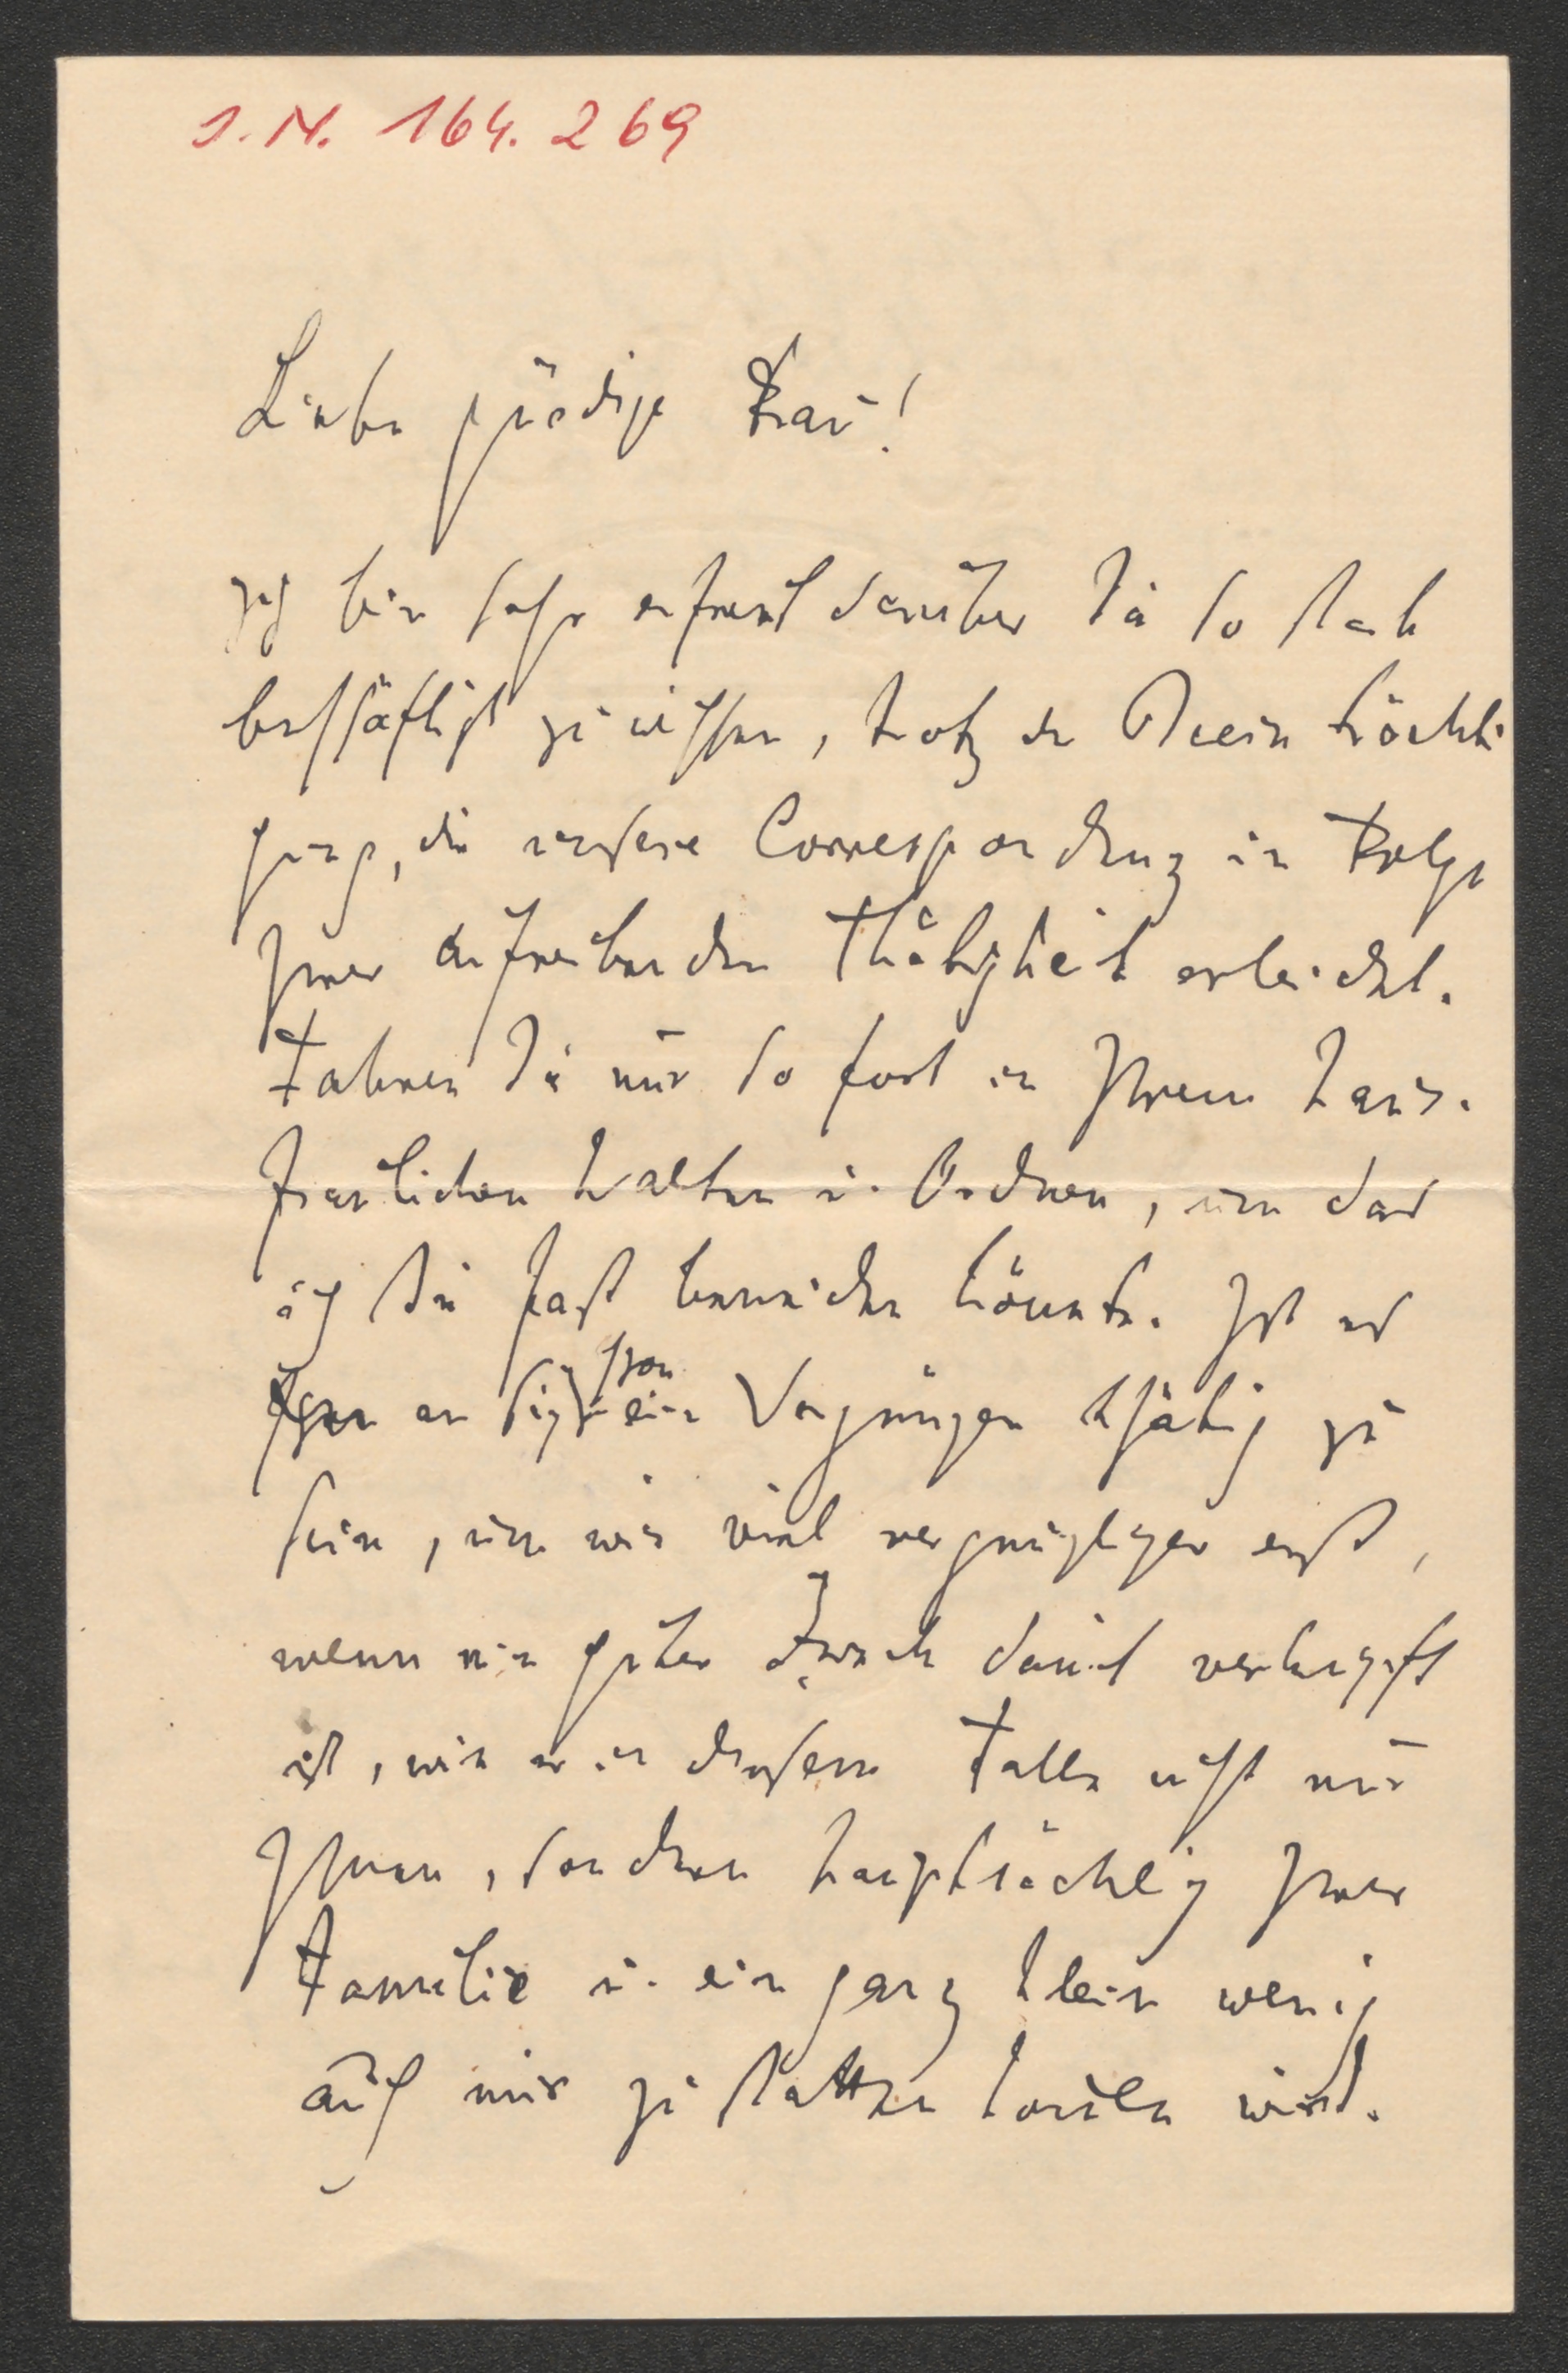 J. N. 164.269
Liebe gnädige Frau!
Ich bin sehr erfreut darüber Sie so stark
beschäftigt zu wissen, trotz der Beeinträchti-
gung, die unsere Correspondenz in Folge
Ihrer aufreibenden Thätigkeit erleidet.
Fahren Sie nur so fort in Ihrem haus-
fraulichen Walten u. Ordnen, um das
ich Sie fast beneiden könnte. Ist es
schon
Ihnen an sich ein Vergnügen thätig zu
sein, um wie viel vergnüglicher erst,
wenn ein guter Zweck damit verknüpft
ist, wie er in diesem Falle nicht nur
Ihnen, sondern hauptsächlich Ihrer
Familie u. ein ganz klein wenig
auch mir zu statten kommen wird.